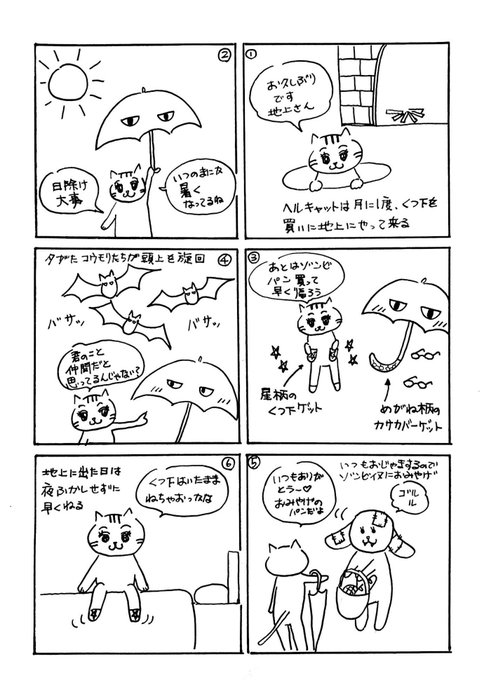 ①
お久しぶり
です
地上さん
ヘルキャットは月に1度、くつ下を
買いに地上にやって来る
②
いつのまにか
暑く
なってるね
日除け
大事
③
あとはゾンビ
パン買って
早く帰ろう
尾柄の
くつ下ゲット
めがね柄の
カサカバーゲット
④
夕がたコウモリたちが頭上を旋回
バサッ
バサッ
君のこと
仲間だと
思ってるんじゃない?
⑤
いつもおじゃまするので
ゾンビイヌにおみやげ
いつもありが
とう〜♡
おみやげの
パンだよ
ゴル
ル
⑥
地上に出た日は
夜ふかしせずに
早くねる
くつ下はいたまま
ねちゃおっかな